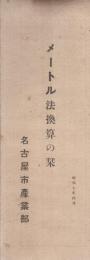 メートル法換算の栞
名古屋市産業部
昭和七年四月